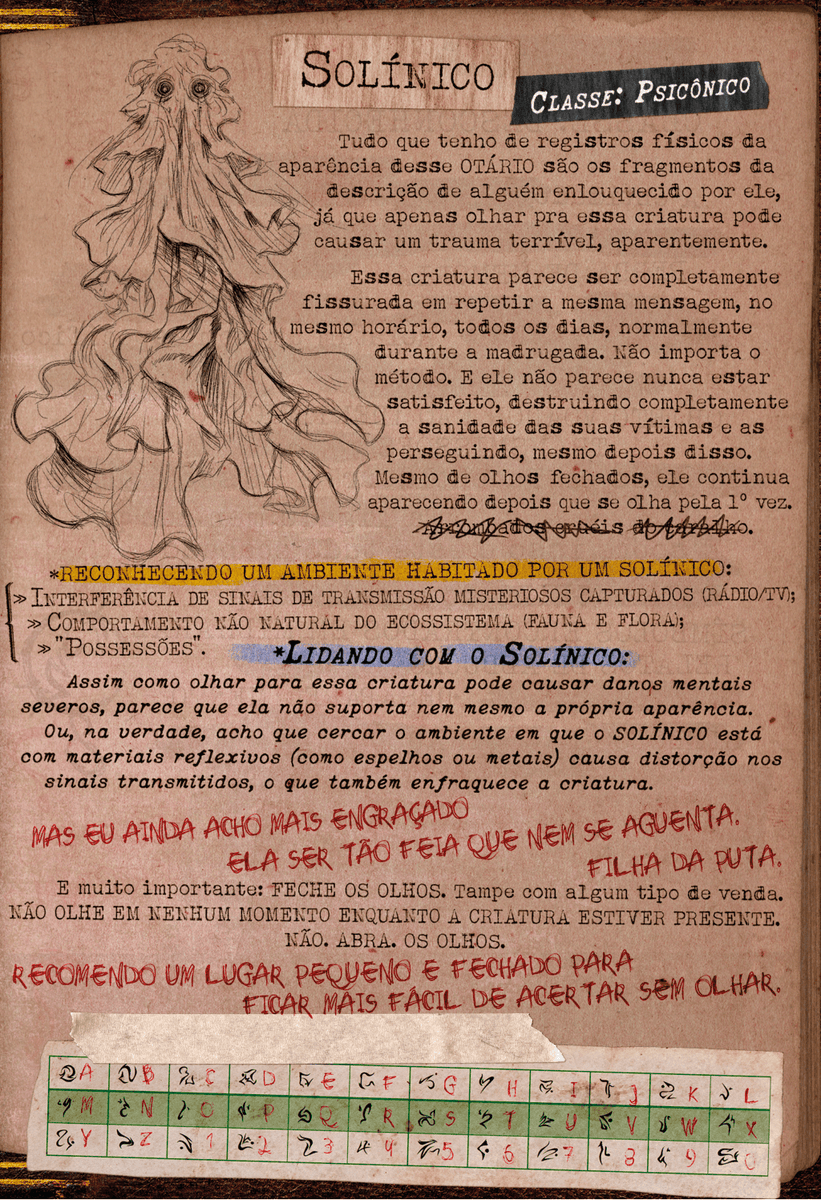 Solínico
Classe: Psicônico
Tudo que tenho de registros físicos da
aparência desse OTÁRIO são os fragmentos da
descrição de alguém enlouquecido por ele,
já que apenas olhar pra essa criatura pode
causar um trauma terrível, aparentemente.
Essa criatura parece ser completamente
fissurada em repetir a mesma mensagem, no
mesmo horário, todos os dias, normalmente
durante a madrugada. Não importa o
método. E ele não parece nunca estar
satisfeito, destruindo completamente
a sanidade das suas vítimas e as
perseguindo, mesmo depois disso.
Mesmo de olhos fechados, ele continua
aparecendo depois que se olha pela 1º vez.
*RECONHECENDO UM AMBIENTE HABITADO POR UM SOLÍNICO:
» INTERFERÊNCIA DE SINAIS DE TRANSMISSÃO MISTERIOSOS CAPTURADOS (RÁDIO/TV);
» COMPORTAMENTO NÃO NATURAL DO ECOSSISTEMA (FAUNA E FLORA);
» "POSSESSÕES".
*LIDANDO COM O SOLÍNICO:
Assim como olhar para essa criatura pode causar danos mentais
severos, parece que ela não suporta nem mesmo a própria aparência.
Ou, na verdade, acho que cercar o ambiente em que o SOLÍNICO está
com materiais reflexivos (como espelhos ou metais) causa distorção nos
sinais transmitidos, o que também enfraquece a criatura.
MAS EU AINDA ACHO MAIS ENGRAÇADO
ELA SER TÃO FEIA QUE NEM SE AGUENTA.
FILHA DA PUTA.
E muito importante: FECHE OS OLHOS. Tampe com algum tipo de venda.
NÃO OLHE EM NENHUM MOMENTO ENQUANTO A CRIATURA ESTIVER PRESENTE.
NÃO. ABRA. OS OLHOS.
RECOMENDO UM LUGAR PEQUENO E FECHADO PARA
FICAR MAIS FÁCIL DE ACERTAR SEM OLHAR.
A B C D E F G H I J K L
M N O P Q R S T U V W X
Y Z 1 2 3 4 5 6 7 8 9 0